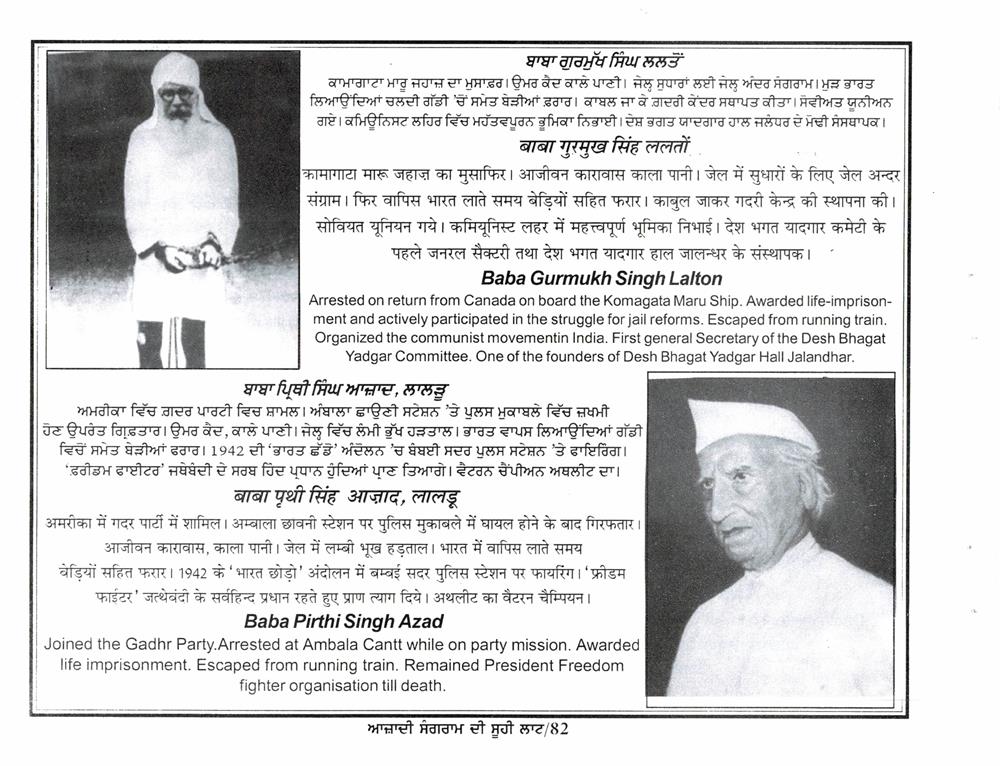 ਬਾਬਾ ਗੁਰਮੁੱਖ ਸਿੰਘ ਲਲਤੋਂ
ਕਾਮਾਗਾਟਾ ਮਾਰੂ ਜਹਾਜ਼ ਦਾ ਮੁਸਾਫ਼ਰ। ਉਮਰ ਕੈਦ ਕਾਲੇ ਪਾਣੀ। ਜੇਲ੍ਹ ਸੁਧਾਰਾਂ ਲਈ ਜੇਲ੍ਹ ਅੰਦਰ ਸੰਗਰਾਮ। ਮੁੜ ਭਾਰਤ
ਲਿਆਉਂਦਿਆਂ ਚਲਦੀ ਗੱਡੀ 'ਚੋਂ ਸਮੇਤ ਬੇੜੀਆਂ ਫ਼ਰਾਰ। ਕਾਬਲ ਜਾ ਕੇ ਗ਼ਦਰੀ ਕੇਂਦਰ ਸਥਾਪਤ ਕੀਤਾ। ਸੋਵੀਅਤ ਯੂਨੀਅਨ
ਗਏ। ਕਮਿਊਨਿਸਟ ਲਹਿਰ ਵਿੱਚ ਮਹੱਤਵਪੂਰਨ ਭੂਮਿਕਾ ਨਿਭਾਈ। ਦੇਸ਼ ਭਗਤ ਯਾਦਗਾਰ ਹਾਲ ਜਲੰਧਰ ਦੇ ਮੋਢੀ ਸੰਸਥਾਪਕ।
बाबा गुरमुख सिंह ललतों
कामागाटा मारू जहाज़ का मुसाफिर। आजीवन कारावास काला पानी। जेल में सुधारों के लिए जेल अन्दर
संग्राम। फिर वापिस भारत लाते समय बेड़ियों सहित फरार। काबुल जाकर गदरी केन्द्र की स्थापना की।
सोवियत यूनियन गये। कमियूनिस्ट लहर में महत्त्वपूर्ण भूमिका निभाई। देश भगत यादगार कमेटी के
पहले जनरल सैक्टरी तथा देश भगत यादगार हाल जालन्धर के संस्थापक।
Baba Gurmukh Singh Lalton
Arrested on return from Canada on board the Komagata Maru Ship. Awarded life-imprison-
ment and actively participated in the struggle for jail reforms. Escaped from running train.
Organized the communist movementin India. First general Secretary of the Desh Bhagat
Yadgar Committee. One of the founders of Desh Bhagat Yadgar Hall Jalandhar.
ਬਾਬਾ ਪ੍ਰਿਥੀ ਸਿੰਘ ਆਜ਼ਾਦ, ਲਾਲੜੂ
ਅਮਰੀਕਾ ਵਿੱਚ ਗ਼ਦਰ ਪਾਰਟੀ ਵਿਚ ਸ਼ਾਮਲ। ਅੰਬਾਲਾ ਛਾਉਣੀ ਸਟੇਸ਼ਨ 'ਤੇ ਪੁਲਸ ਮੁਕਾਬਲੇ ਵਿੱਚ ਜ਼ਖਮੀ
ਹੋਣ ਉਪਰੰਤ ਗ੍ਰਿਫ਼ਤਾਰ। ਉਮਰ ਕੈਦ, ਕਾਲੇ ਪਾਣੀ। ਜੇਲ੍ਹ ਵਿੱਚ ਲੰਮੀ ਭੁੱਖ ਹੜਤਾਲ। ਭਾਰਤ ਵਾਪਸ ਲਿਆਉਂਦਿਆਂ ਗੱਡੀ
ਵਿਚੋਂ ਸਮੇਤ ਬੇੜੀਆਂ ਫਰਾਰ। 1942 ਦੀ 'ਭਾਰਤ ਛੱਡੋ' ਅੰਦੋਲਨ 'ਚ ਬੰਬਈ ਸਦਰ ਪੁਲਸ ਸਟੇਸ਼ਨ 'ਤੇ ਫਾਇਰਿੰਗ।
'ਫ਼ਰੀਡਮ ਫਾਈਟਰ' ਜਥੇਬੰਦੀ ਦੇ ਸਰਬ ਹਿੰਦ ਪ੍ਰਧਾਨ ਹੁੰਦਿਆਂ ਪ੍ਰਾਣ ਤਿਆਗੇ। ਵੈਟਰਨ ਚੈਂਪੀਅਨ ਅਥਲੀਟ ਦਾ।
बाबा पृथी सिंह आज़ाद, लालडू
अमरीका में गदर पार्टी में शामिल। अम्बाला छावनी स्टेशन पर पुलिस मुकाबले में घायल होने के बाद गिरफतार।
आजीवन कारावास, काला पानी। जेल में लम्बी भूख हड़ताल। भारत में वापिस लाते समय
बेड़ियों सहित फरार। 1942 के 'भारत छोड़ो' अंदोलन में बम्बई सदर पुलिस स्टेशन पर फायरिंग। 'फ्रीडम
फाईटर' जत्थेबंदी के सर्वहिन्द प्रधान रहते हुए प्राण त्याग दिये। अथलीट का वैटरन चैम्पियन।
Baba Pirthi Singh Azad
Joined the Gadhr Party.Arrested at Ambala Cantt while on party mission. Awarded
life imprisonment. Escaped from running train. Remained President Freedom
fighter organisation till death.
ਆਜ਼ਾਦੀ ਸੰਗਰਾਮ ਦੀ ਸੂਹੀ ਲਾਟ/82